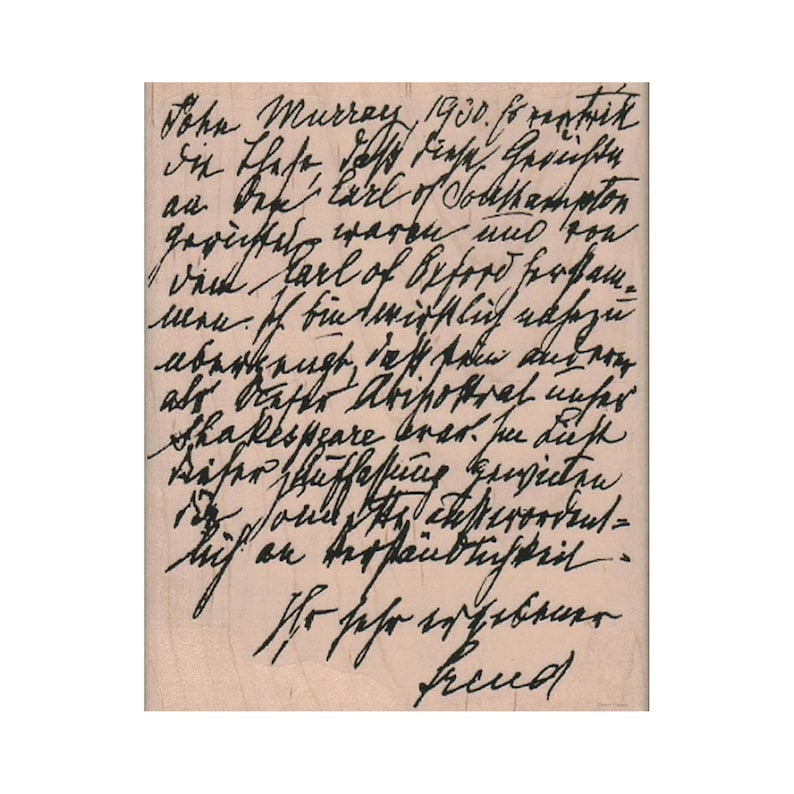 John Murray, 1930. Er vertritt
die These, daß diese Gedichte
an den Earl of Southampton
gerichtet waren und von
dem Earl of Oxford herstam-
men. Ich bin wirklich nahezu
überzeugt, daß kein anderer
als dieser Aristokrat unser
Shakespeare war. Im Licht
dieser Auffassung gewinnen
die Sonette außerordent-
lich an Verständlichkeit.
Ihr sehr ergebener
Freud